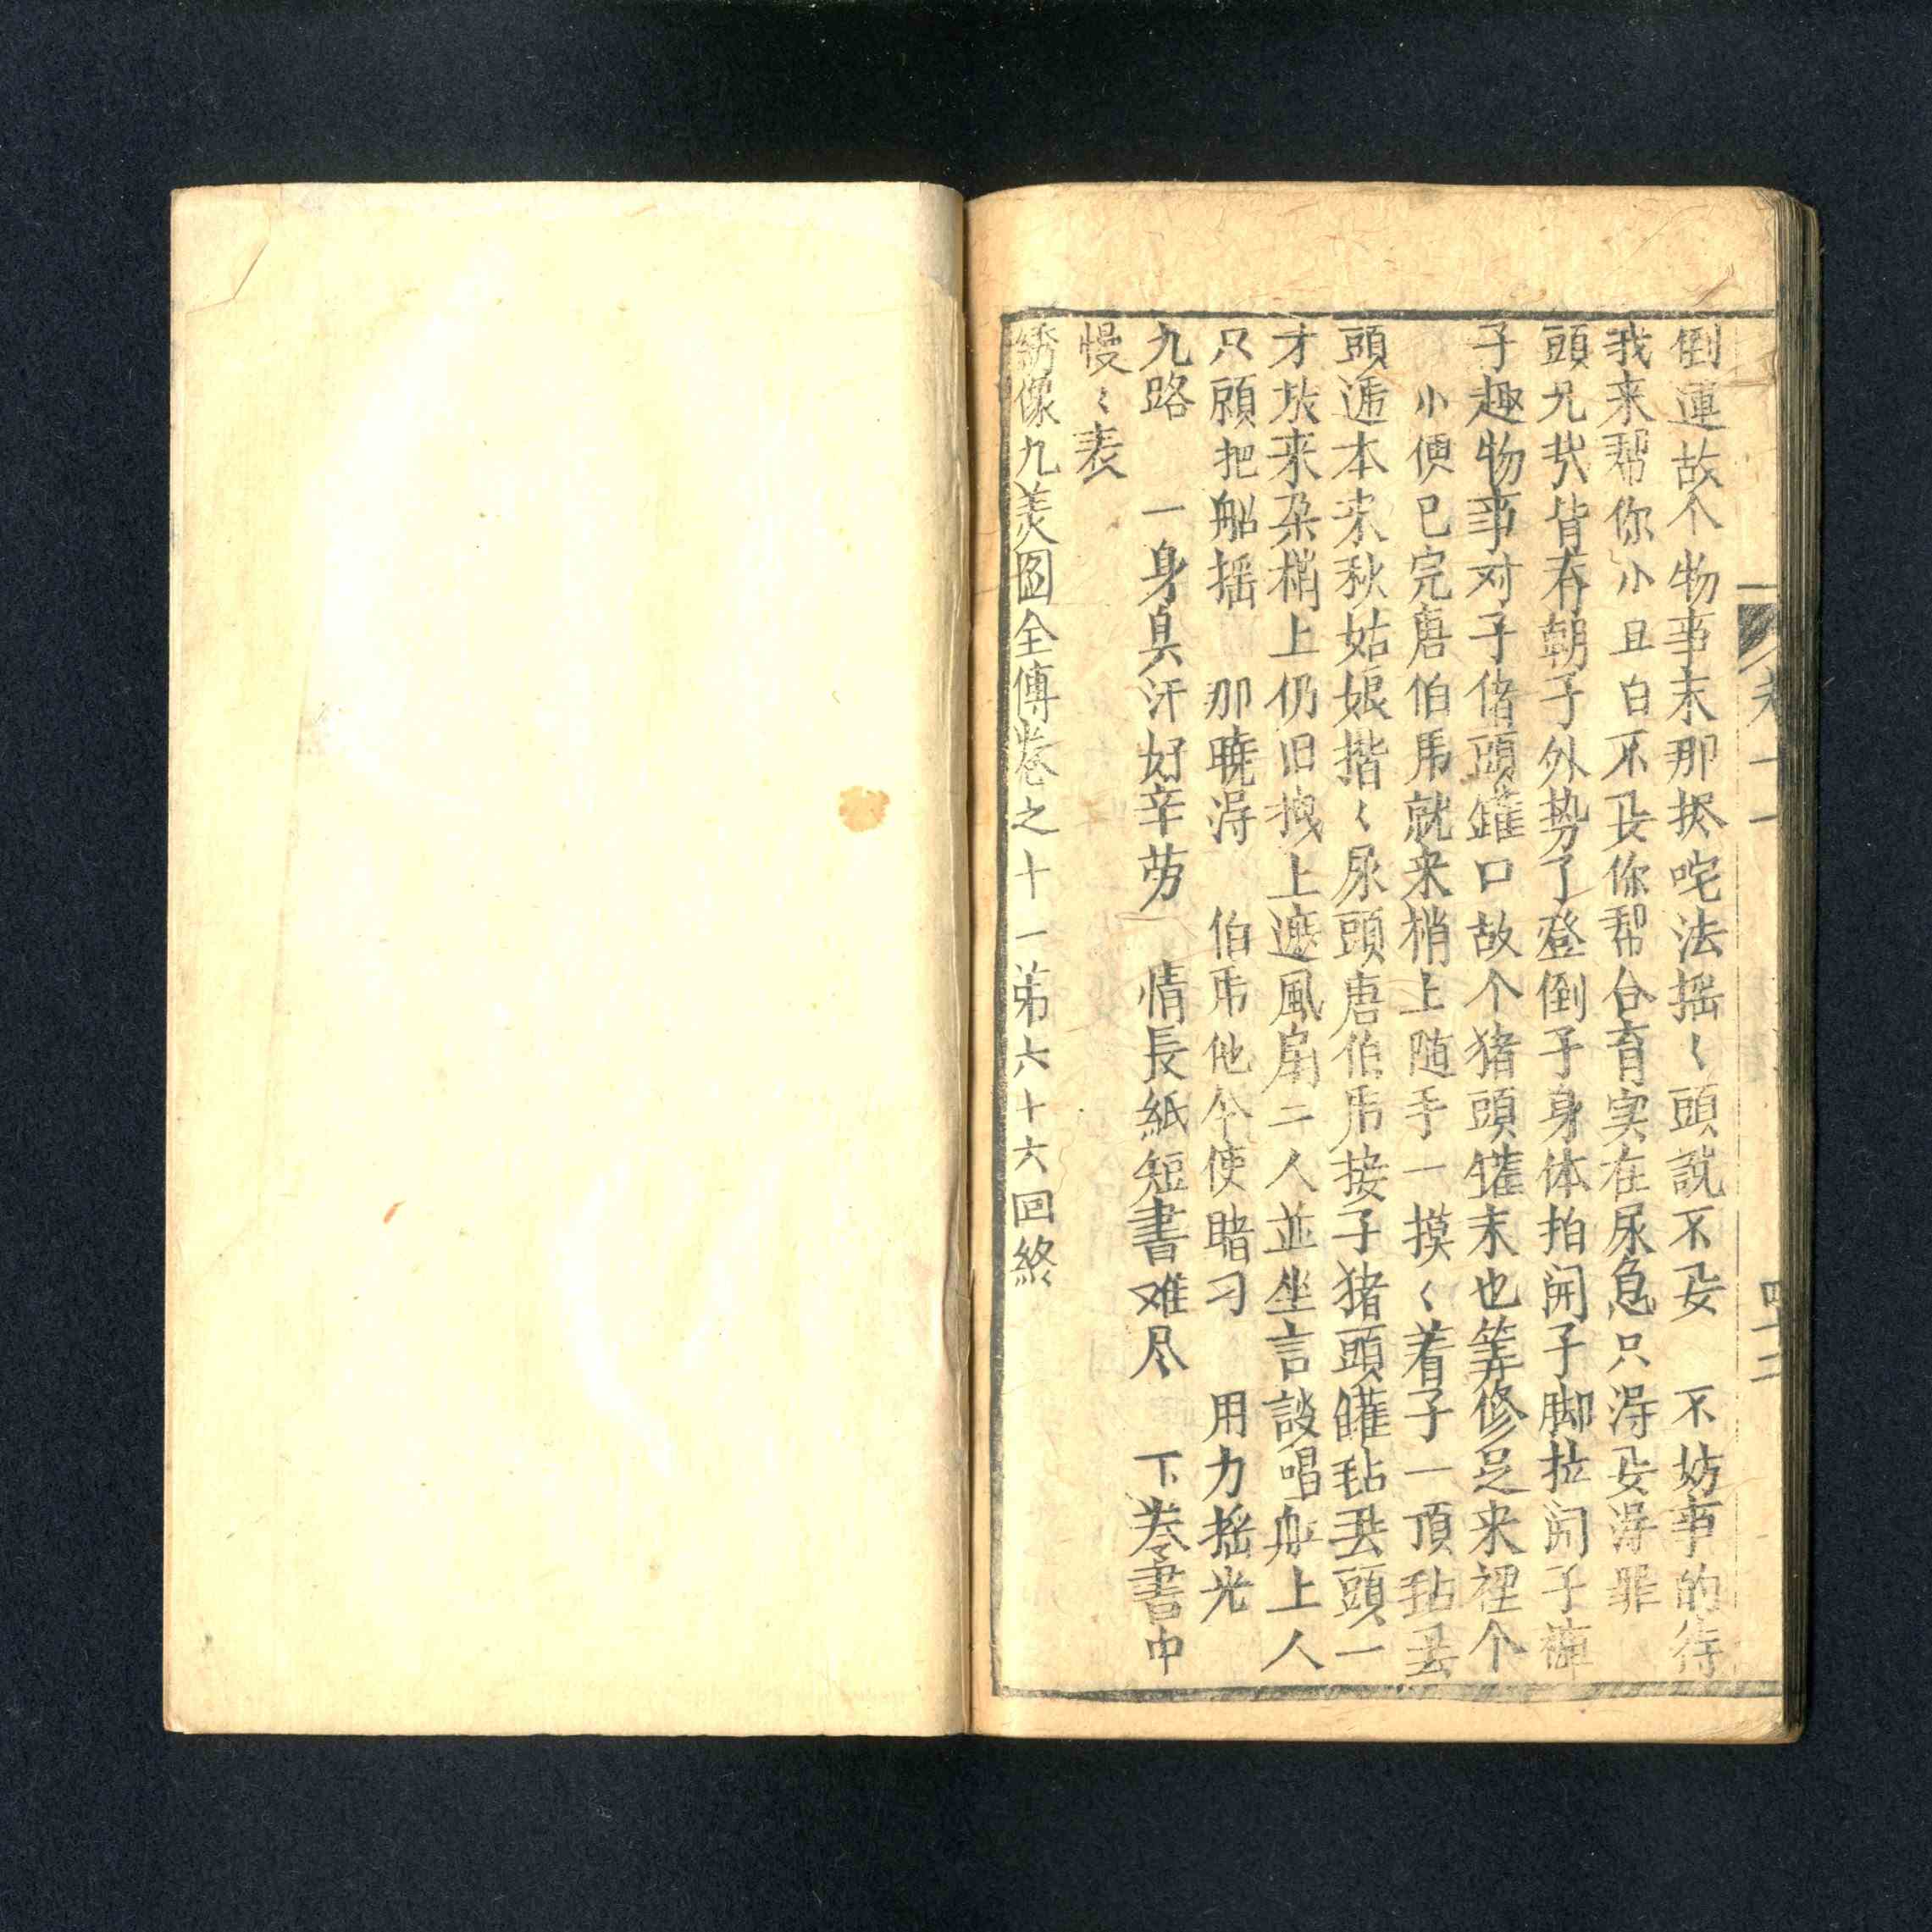 倒運故个物事末那挨咤法摇〻頭說不安　不妨事的待
我来帮你小且白不及你帮合育实在尿急只淂安淂罪
頭皆有朝子外势了登倒子身体拍開子脚拉開子褲
子趣物事对子偖頭罐口故个猪頭罐末也筭修足来裡个
小便已完唐伯虎就来梢上随手一摸〻着子一頂毡丟
頭遞本来秋姑娘揩〻尿頭唐伯虎接子猪頭罐毡丟頭一
才放来朶梢上仍旧拽上遮風扇二人並坐言談唱船上人
只顧把船摇　那曉淂　伯虎他个使賭刁　用力摇光
九路　一身臭汗好辛劳　情長紙短書难尽　下卷書中
慢〻表
綉像九美圖全傳卷之十一第六十六回終
卷十一
四十二